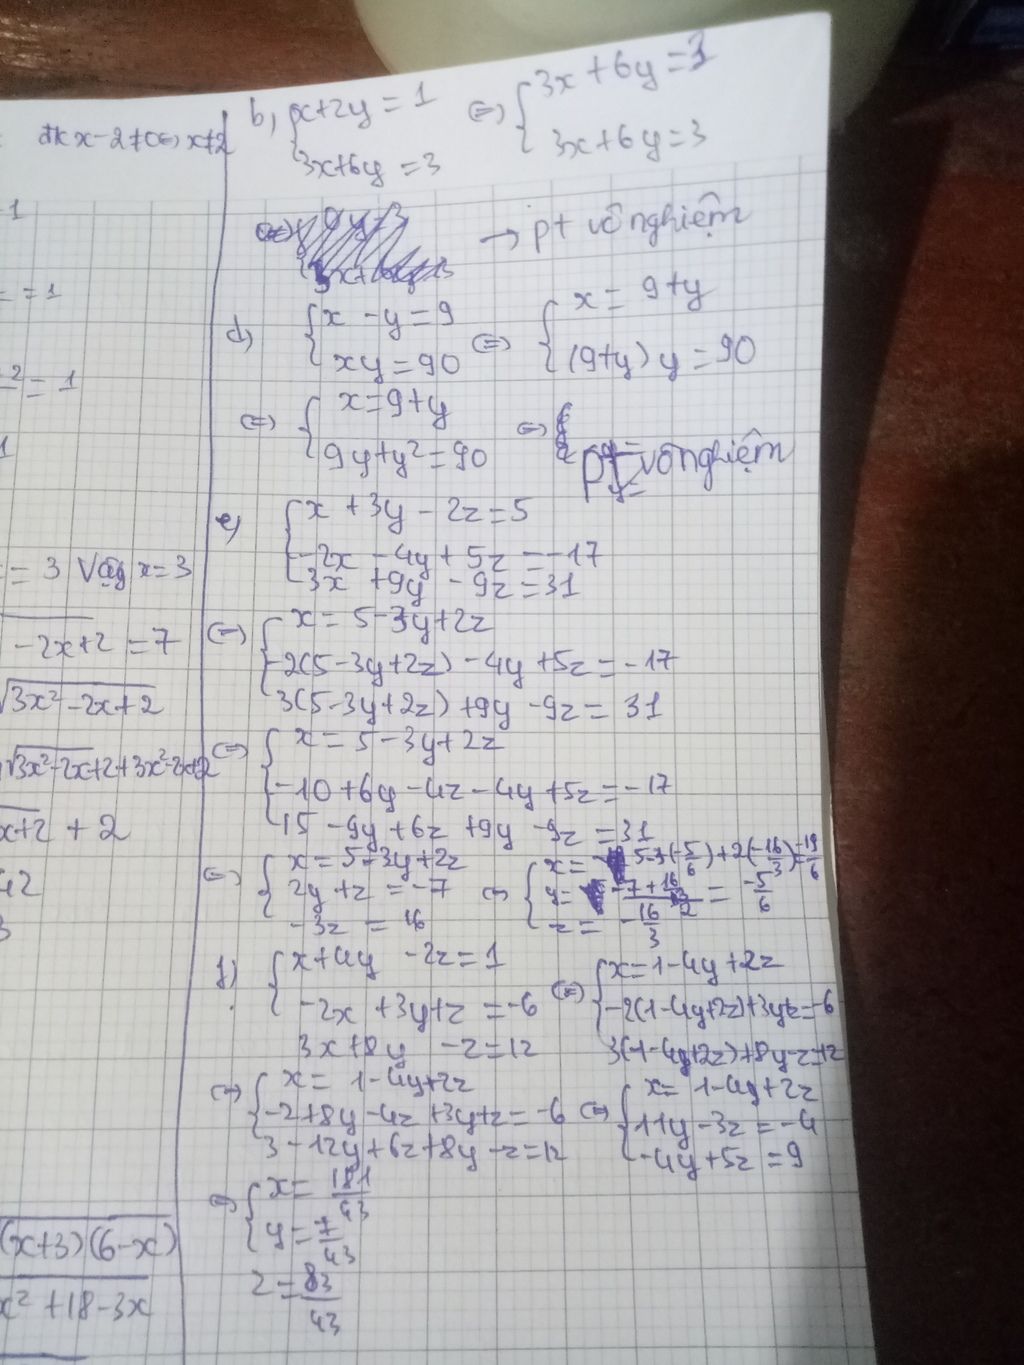 đk x-2≠0⇔x≠2
-1
= =1
2 = 1
1
= 3 Vậy x=3
-2x+2 = 7
√3x²-2x+2
√3x²-2x+2+3x²-2x+2
x+2 + 2
42
3
(x+3)(6-x)
x²+18-3x
b, {x+2y = 1 ⇔ {3x+6y=3
3x+6y = 3 3x+6y=3
→ pt vô nghiệm
d) {x - y = 9 ⇔ {x = 9+y
xy = 90 (9+y)y = 90
⇔ {x=9+y ⇔
9y+y²=90 pt vô nghiệm
e) {x + 3y - 2z = 5
-2x - 4y + 5z = -17
3x + 9y - 9z = 31
⇔ {x = 5-3y+2z
-2(5-3y+2z) - 4y + 5z = -17
3(5-3y+2z) + 9y - 9z = 31
⇔ {x = 5-3y+2z
-10+6y-4z-4y+5z=-17
15-9y+6z+9y-9z=31
⇔ {x=5-3y+2z ⇔ {x= 5-3(-5/6)+2(-16/3)=-19/6
2y+z = -7 y= -7+16/3/2 = -5/6
-3z = 16 z = -16/3
f) {x+4y - 2z = 1 ⇔ {x=1-4y+2z
-2x + 3y+z = -6 -2(1-4y+2z)+3y+z=-6
3x+8y - z = 12 3(1-4y+2z)+8y-z=12
⇔ {x = 1-4y+2z ⇔ {x= 1-4y+2z
-2+8y-4z+3y+z=-6 11y-3z=-4
3-12y+6z+8y-z=12 -4y+5z=9
⇔ {x = 181/43
y = 7/43
z = 83/43